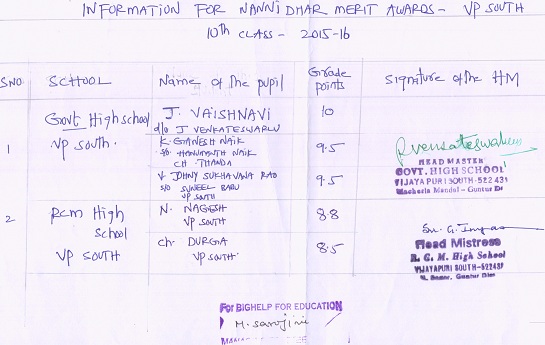 INFORMATION FOR NANNI DHAR MERIT AWARDS - VP SOUTH
10th CLASS - 2015-16
SNO SCHOOL Name of the pupil Grade points Signature of the HM
1 Govt High school VP South.
J. VAISHNAVI 10
d/o J VENKATESWARLU
K. GANESH NAIK 9.5
S/o HANUMANTH NAIK
CH THANDA
V. JOHNY SUKHAVANA RAO 9.5
S/o SUNEEL BABU
VP SOUTH
Rvenkateswarlu
HEAD MASTER
GOVT. HIGH SCHOOL
VIJAYA PURI SOUTH-522 431
Macherla Mandal - Guntur Dt
2 RCM High School VP SOUTH
N. NAGESH 8.8
VP SOUTH
Ch. DURGA 8.5
VP SOUTH.
Sr. G.
Head Mistress
R. C. M. High School
VIJAYAPURI SOUTH-522439
Guntur Dist
For BIGHELP FOR EDUCATION
M. Sarojini